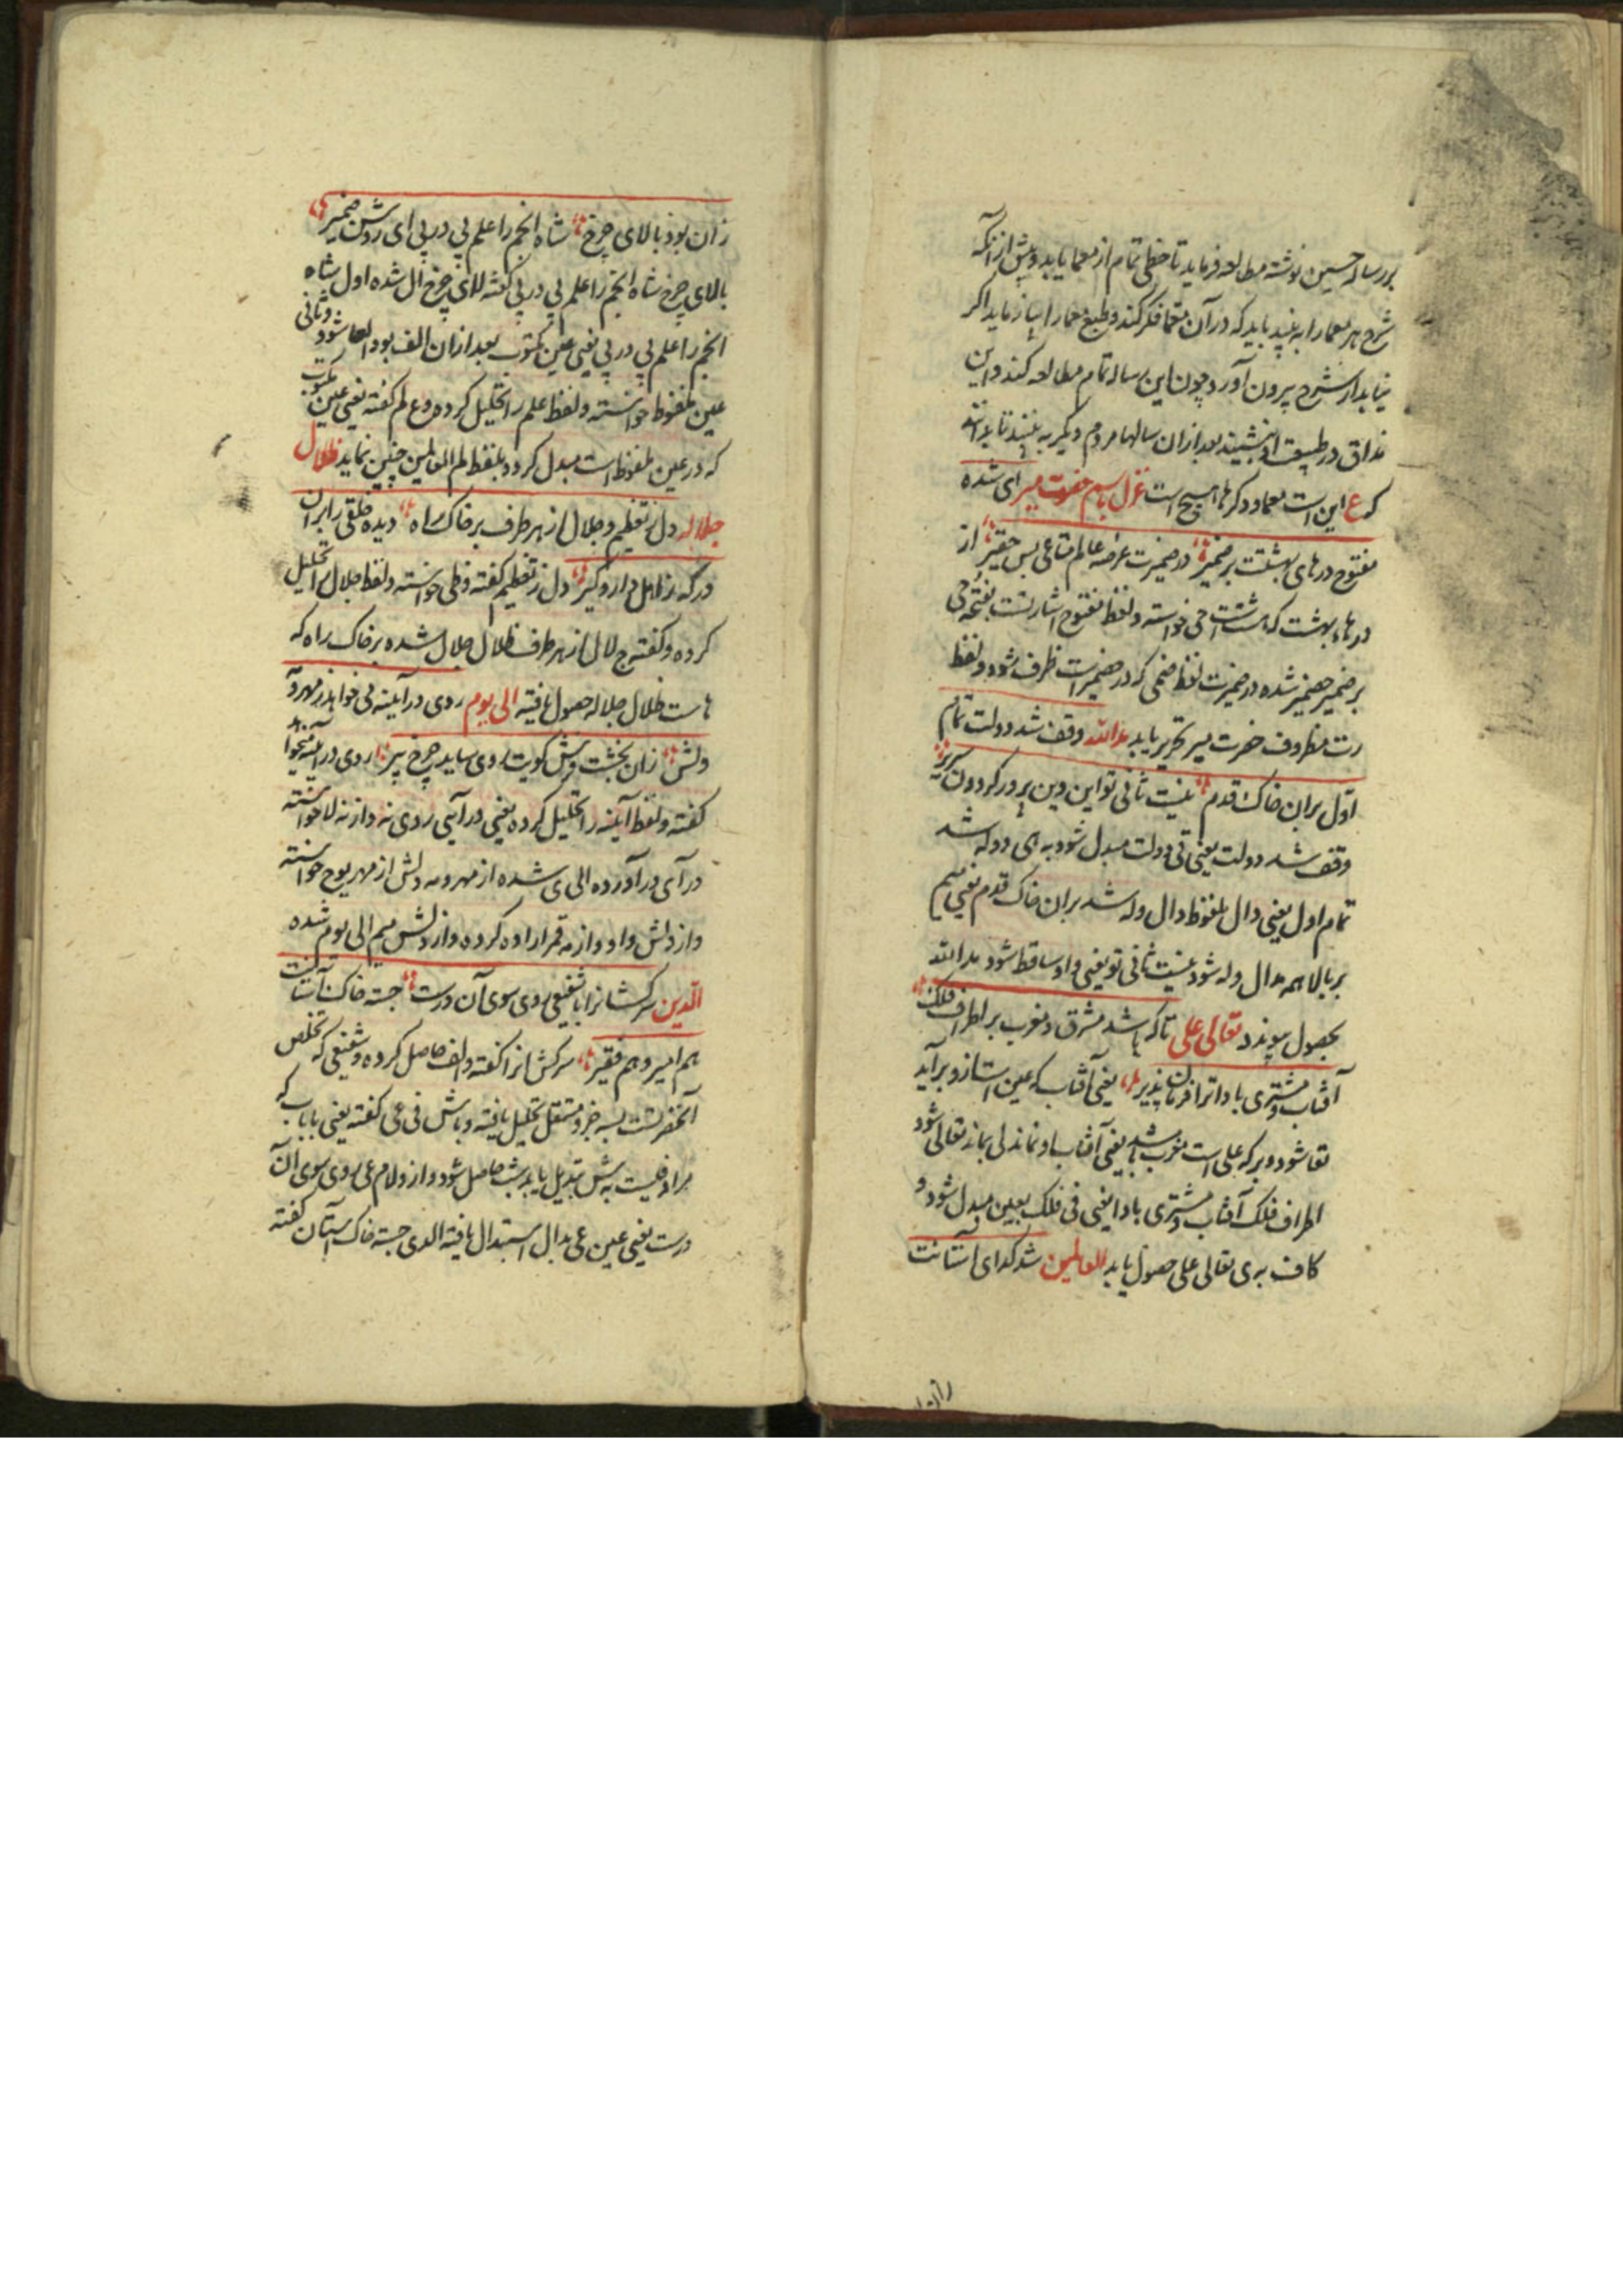 بر رساله حسین نوشته مطالعه فرماید تا حظی تمام از معما یابد و پیش از آنکه
شرح هر معما را به بیند باید که در آن معما فکر کند و طبع معما را بیازماید اگر
نیابد از شرح بیرون آورد چون این رساله تمام مطالعه کند و این
مذاق در طبیعت او نشیند بعد از آن رسالها مردم دیگر به بیند تا بداند
که ع این است معما و دکرها هیچ است غزل باسم حضرت میر ای شده
مفتوح درهای بهشتت بر ضمیر در ضمیرت عرضه عالم متاعی بس حقیر از
درهاء بهشت که هشت است حی خواسته و لفظ مفتوح اشارتست بفتحه حی
بر ضمیر حضیر شده در ضمیرت لفظ ضمی که در حضیر است ظرف شود و لفظ
رت مظروف حضرت میر تحریر یابد مد الله وقف شد دولت تمام
اول بر آن خاک قدم نیست ثانی تو این دین پرور کردون سریر
وقف شد دولت یعنی تی دولت مبدل شود به ی دوله شد
تمام اول یعنی دال ملفوظ دال وله شد بر آن خاک قدم یعنی میم
بر بالا همه مدال وله شود نیست ثانی تو یعنی واو ساقط شود مد الله
بحصول پیوندد تعالی علی تا که باشد مشرق و مغرب بر اطراف فلک
آفتاب و مشتری بادا ترا فرمان پذیر یعنی آفتاب که عین است از و بر آید
تعا شود و بر که علی است مغرب باشد یعنی آفتاب او نماند لی بماند تعالی شود
اطراف فلک آفتاب و مشتری بادا یعنی فی فلک بعین مبدل شود و
کاف به ی تعالی علی حصول یابد للعالمین شد کدای آستانت
زان بود بالای چرخ شاه انجم را علم پی در پی ای روشن ضمیر
بالای چرخ شاه انجم را علم پی در پی گفته للای چرخ ال شده اول شاه
انجم را علم پی در پی یعنی عین مکتوب بعد از آن الف بود العا شود و ثانی
عین ملفوظ خواسته و لفظ علم را تحلیل کرده و ع لم گفته یعنی عین مکتوب
که در عین ملفوظ است مبدل کرده بلفظ لم العالمین چنین نماید ظلال
جلاله دل ز تعظیم و جلال از هر طرف بر خاک راه دیده خلقی را بر آن
درگه ز اهل دار و گیر دل ز تعظیم گفته و ظی خواسته و لفظ جلال را تحلیل
کرده و گفته ج لال از هر طرف ظلال جلال شده بر خاک راه که
هاست ظلال جلاله حصول یافته الی یوم روی در آیینه نی خواهد ز مهر و آه
دلش زان بخشت فرش کویت روی ساید چرخ پیر روی در آیینه نیخواهد
گفته و لفظ آیینه را تحلیل کرده یعنی در آیی روی نه و از نه لا خواسته
در آی در آورده الی ی شده از مهر و مه دلش از مهر یوح خواسته
و از دلش واو و از مه قمر اراده کرده و از دلش میم الی یوم شده
الدین سرکشانرا با شفیعی روی سوی آن درست جسته خاک آستانت
هم امیر و هم فقیر سرکشانرا گفته و الف حاصل کرده و شفیعی که تخلص
آنحضرتست بسه جزو مستقل تحلیل یافته و باش فی عی گفته یعنی با باب که
مراد فیست به ش تبدیل یابد شب حاصل شود و از و لام عی روی سوی آن
درست یعنی عین عی بدال استبدال یافته الدی جسته خاک آستان گفته